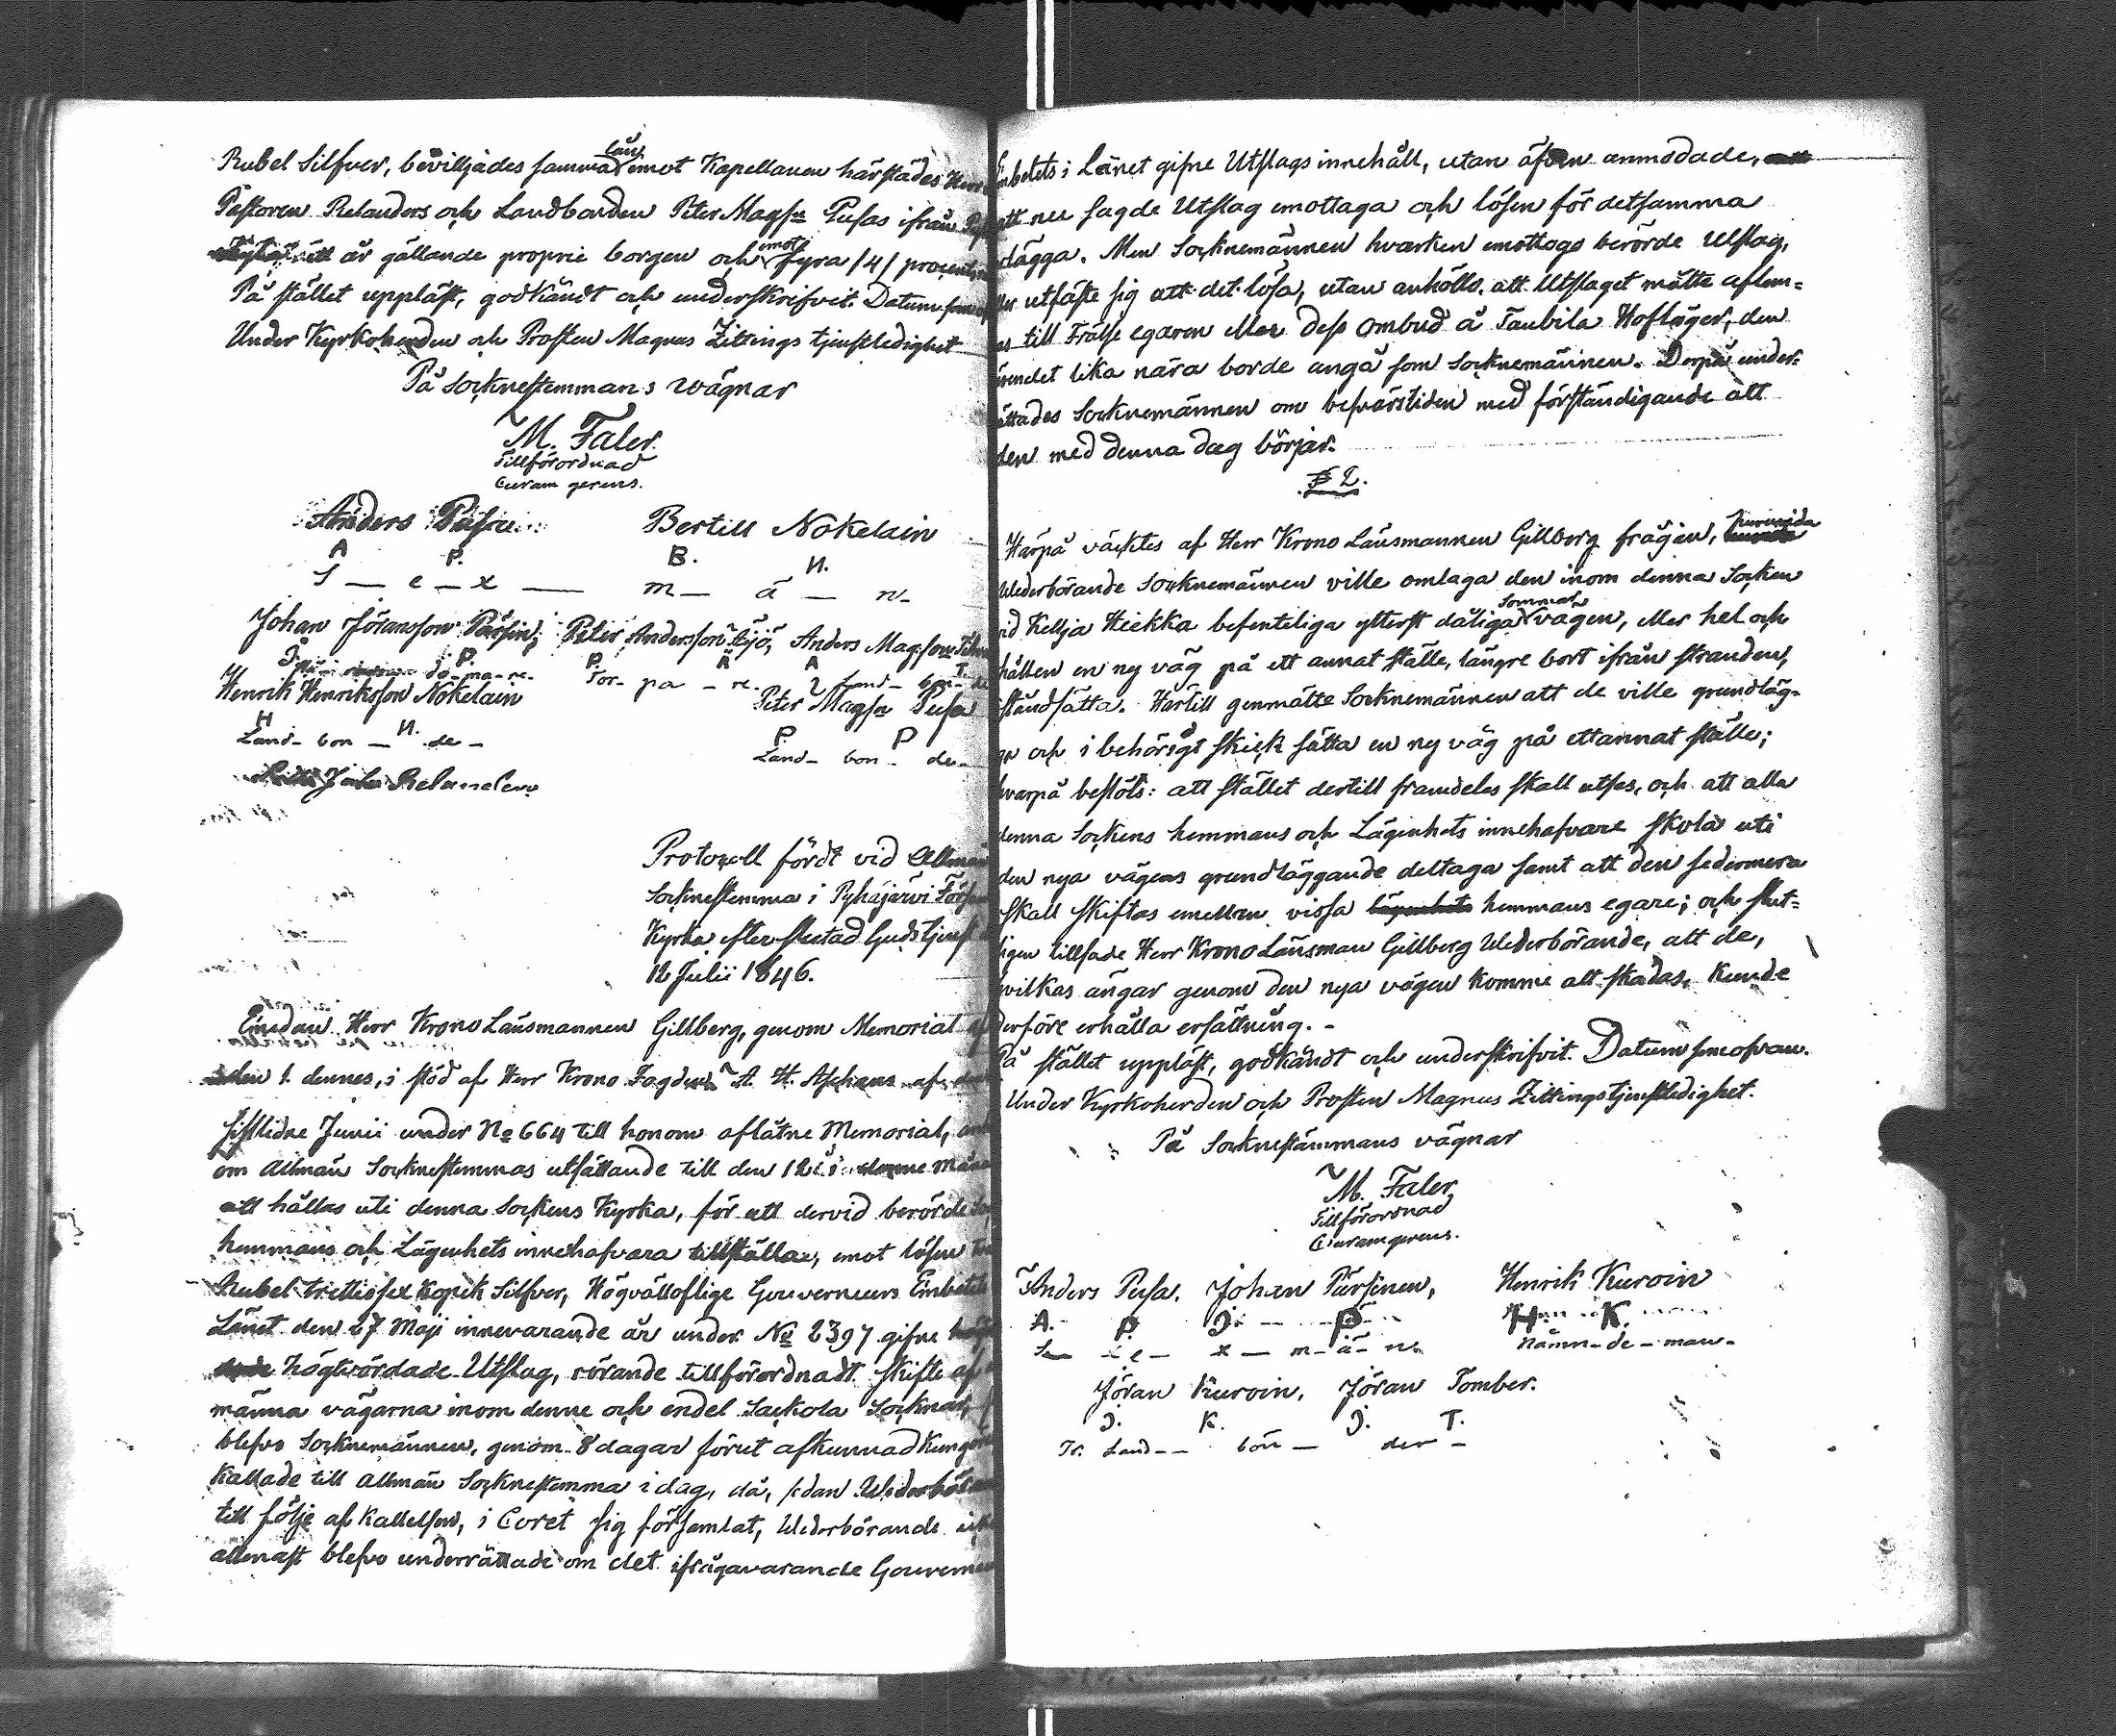 Rubel Silfver, beviljades samma lån emot Kapellanen härstädes Herr
Pastoren Relanders och Landbonden Peter Magss Pusas ifrån
ett år gällande proprie borgen och emot fyra /4/ procent
På stället uppläst, godkändt och underskrifvit. Datum som
Under Kyrkoherden och Prosten Magnus Zittings tjenstledighet
På Socknestemmans wägnar
M. Faler.
Tillförordnad
Curam gerens.
Anders Pusa Bertill Nokelain
A P. B. N.
S — e — x — m — ä — n —
Johan Jöransson Pärsin, Peter Andersson Äijö, Anders Magsson
J P. P. Ä A T
do-ma-re. Tor-pa-re. Land-bon-de
Henrik Henriksson Nokelain Peter Magss Pusa
H N. P P
Land-bon-de- Land-bon-de-
Relander
Protocoll fördt vid Allmän
Socknestemma i Pyhäjärvi
Kyrka efter slutad Gudstjenst
12 Julii 1846.
Emedan Herr Krono Länsmannen Gillberg, genom Memorial af
den 1. dennes, i stöd af Herr Krono Fogden A. H. Aschans af
sistlidne Junii under No 664 till honom aflåtne Memorial,
om allmän Socknestemmas utsättande till den 12 i denne
att hållas uti denna Sockens Kyrka, för att dervid berörde
hemmans och Lägenhets innehafvara tillställa, emot lösen
Rubel trettiosex kopek Silfver, Högvälloflige Gouverneurs Embetets
Länet den 27 Maji innevarande år under No 2397 gifne
högtvördade Utslag, rörande tillförordnadt skifte af
männa vägarna inom denne och endel Sackola Socknar,
blefvo Socknemännen, genom 8 dagar förut afkunnad
kallade till allmän Socknestemma i dag, då, sedan Wederbörande
till följe af kallelsen, i Coret sig församlat, Wederbörande
allenast blefvo underrättade om det ifrågavarande
Embetets i Länet gifne Utslags innehåll, utan äfven anmodade,
att nu sagde Utslag emottaga och lösen för detsamma
erlägga. Men Socknemännen hvarken emottogo berörde Utslag,
eller utfäste sig att det lösa, utan anhöllo, att Utslaget måtte aflem=
nas till Frälse egaren eller dess ombud å Taubila Hofläger, den
ärendet lika nära borde angå som Socknemännen. Derpå under=
rättades Socknemännen om besvärstiden med förständigande att
den med denna dag börjar.
§ 2.
Härpå väcktes af Herr Krono Länsmannen Gillberg frågan, huruvida
Wederbörande Socknemännen ville omlaga den inom denna Socken
vid Kelljä Hiekka befinteliga ytterst dåliga Sommar vägen, eller hel och
hållen en ny väg på ett annat ställe, längre bort ifrån stranden,
iståndsätta. Härtill genmälte Socknemännen att de ville grundläg-
ga och i behörigt skick sätta en ny väg på ett annat ställe;
hvarpå beslöts: att stället dertill framdeles skall utses, och att alla
denna Sockens hemmans och Lägenhets innehafvare skola uti
den nya vägens grundläggande deltaga samt att den sedermera
skall skiftas emellan vissa hemmans egare; och slut=
ligen tillsade Herr Krono Länsman Gillberg Wederbörande, att de,
hvilkas ängar genom den nya vägen komme att skadas, kunde
derföre erhålla ersättning. -
På stället uppläst, godkändt och underskrifvit. Datum som ofvan.
Under Kyrkoherden och Prosten Magnus Zittings tjenstledighet.
På Socknestämmans vägnar
M. Faler
Tillförordnad
Curam gerens.
Anders Pusa, Johan Pärsinen, Henrik Kuroin
A. P J. P H. K.
S — e — x — m — ä — n. Nämn-de-man-
Jöran Kuroin, Jöran Tomber.
J. K. J. T.
Land — bön — der —